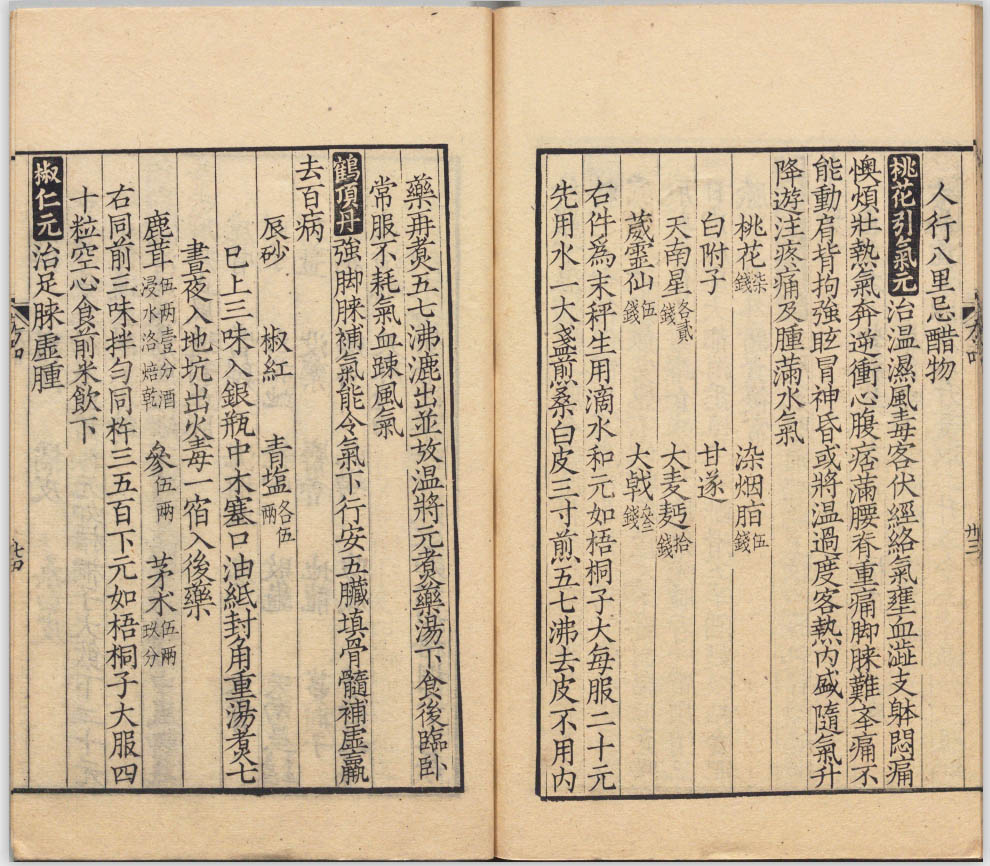 人行八里忌醋物
桃花引氣元 治温濕風毒客伏經絡氣壅血澁支躰悶痛
懊煩壯熱氣奔逆衝心腹痞滿腰脊重痛脚膝難 痛不
能動肩背拘強眩冒神昏或將温過度客熱內盛隨氣升
降遊注疼痛及腫滿水氣
桃花柒錢 染烟脂伍錢
白附子 甘遂
天南星各貳錢 大麦麪拾錢
葳霊仙伍錢 大戟叁錢
右件爲末秤生用滴水和元如梧桐子大每服二十元
先用水一大盞煎桑白皮三寸煎五七沸去皮不用內
藥再煮五七沸漉出並放温將元煮藥湯下食後臨卧
常服不耗氣血踈風氣
鶴頂丹 強脚膝補氣能令氣下行安五臟填骨髓補虛羸
去百病
辰砂 椒紅 青塩各伍兩
巳上三味入銀瓶中木塞口油紙封角重湯煮七
晝夜入地坑出火毒一宿入後藥
鹿茸伍两壹分酒浸水洛焙乾 參伍兩 茅术伍兩玖分
右同前三味拌勻同杵三五百下元如梧桐子大服四
十粒空心食前米飲下
椒仁元 治足膝虛腫